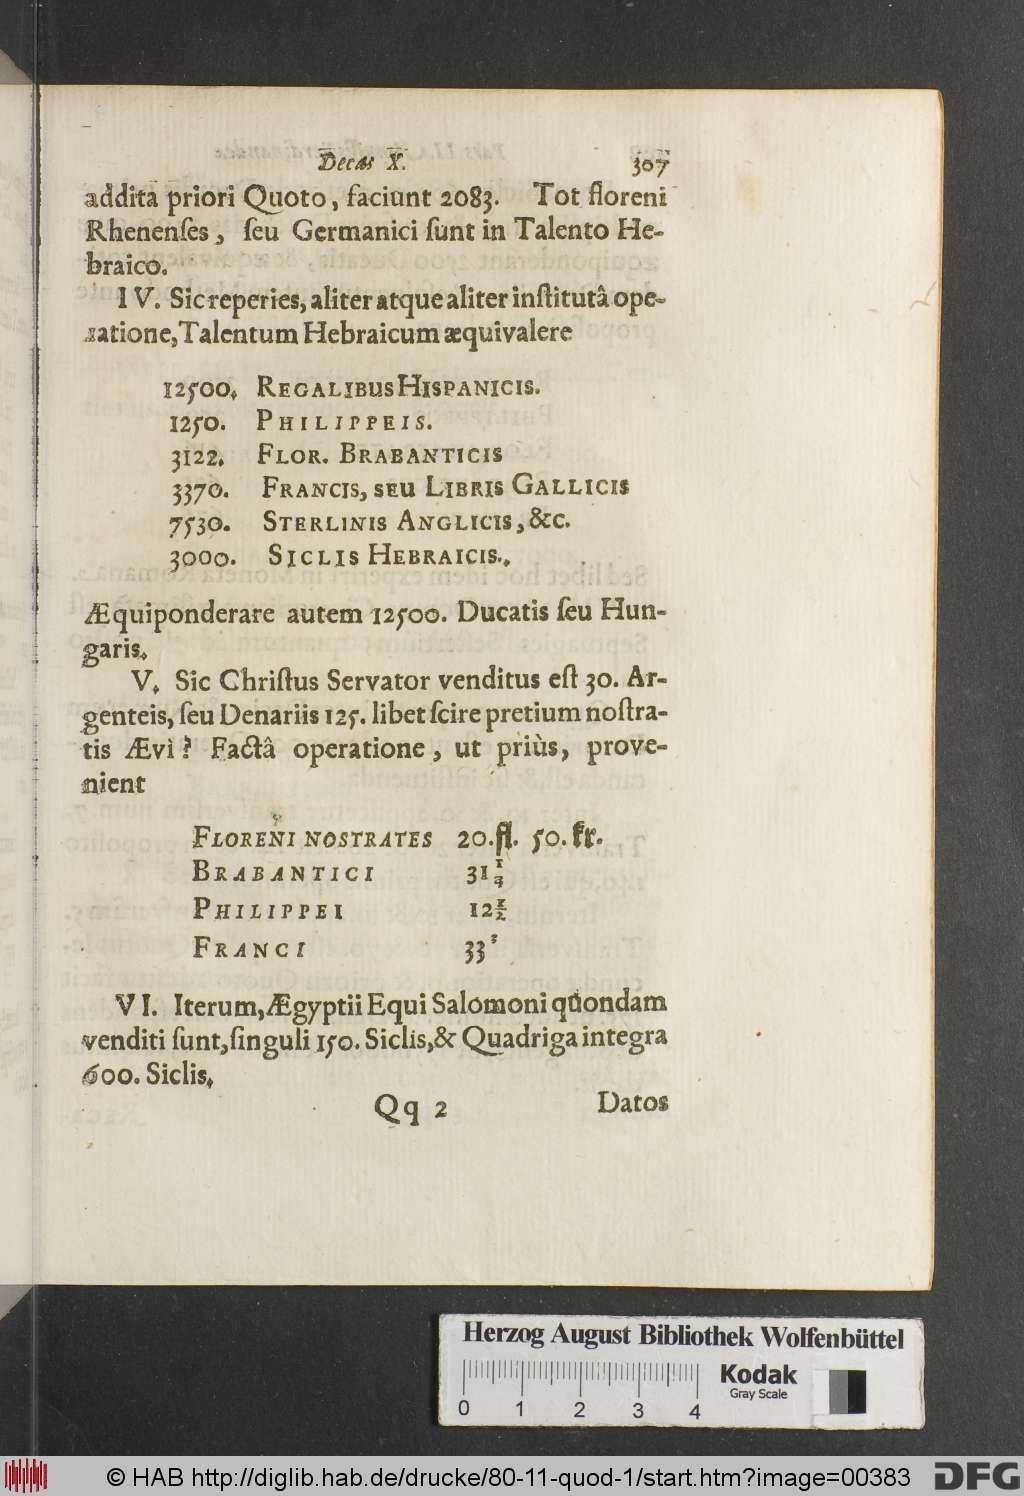 Decas X. 307
addita priori Quoto, faciunt 2083. Tot floreni
Rhenenſes, ſeu Germanici ſunt in Talento He-
braico.
IV. Sic reperies, aliter atque aliter inſtitutâ ope-
ratione, Talentum Hebraicum æquivalere
12500. REGALIBUS HISPANICIS.
1250. PHILIPPEIS.
3122. FLOR. BRABANTICIS
3370. FRANCIS, SEU LIBRIS GALLICIS
7530. STERLINIS ANGLICIS, &c.
3000. SICLIS HEBRAICIS.
Æquiponderare autem 12500. Ducatis ſeu Hun-
garis.
V. Sic Chriſtus Servator venditus eſt 30. Ar-
genteis, ſeu Denariis 125. libet ſcire pretium noſtra-
tis Ævi? Factâ operatione, ut priùs, prove-
nient
FLORENI NOSTRATES 20. fl. 50. kr.
BRABANTICI 31 1/4
PHILIPPEI 12 1/2
FRANCI 33
VI. Iterum, Ægyptii Equi Salomoni quondam
venditi ſunt, ſinguli 150. Siclis, & Quadriga integra
600. Siclis.
Qq 2 Datos
Herzog August Bibliothek Wolfenbüttel
Kodak
Gray Scale
0 1 2 3 4
© HAB http://diglib.hab.de/drucke/80-11-quod-1/start.htm?image=00383 DFG